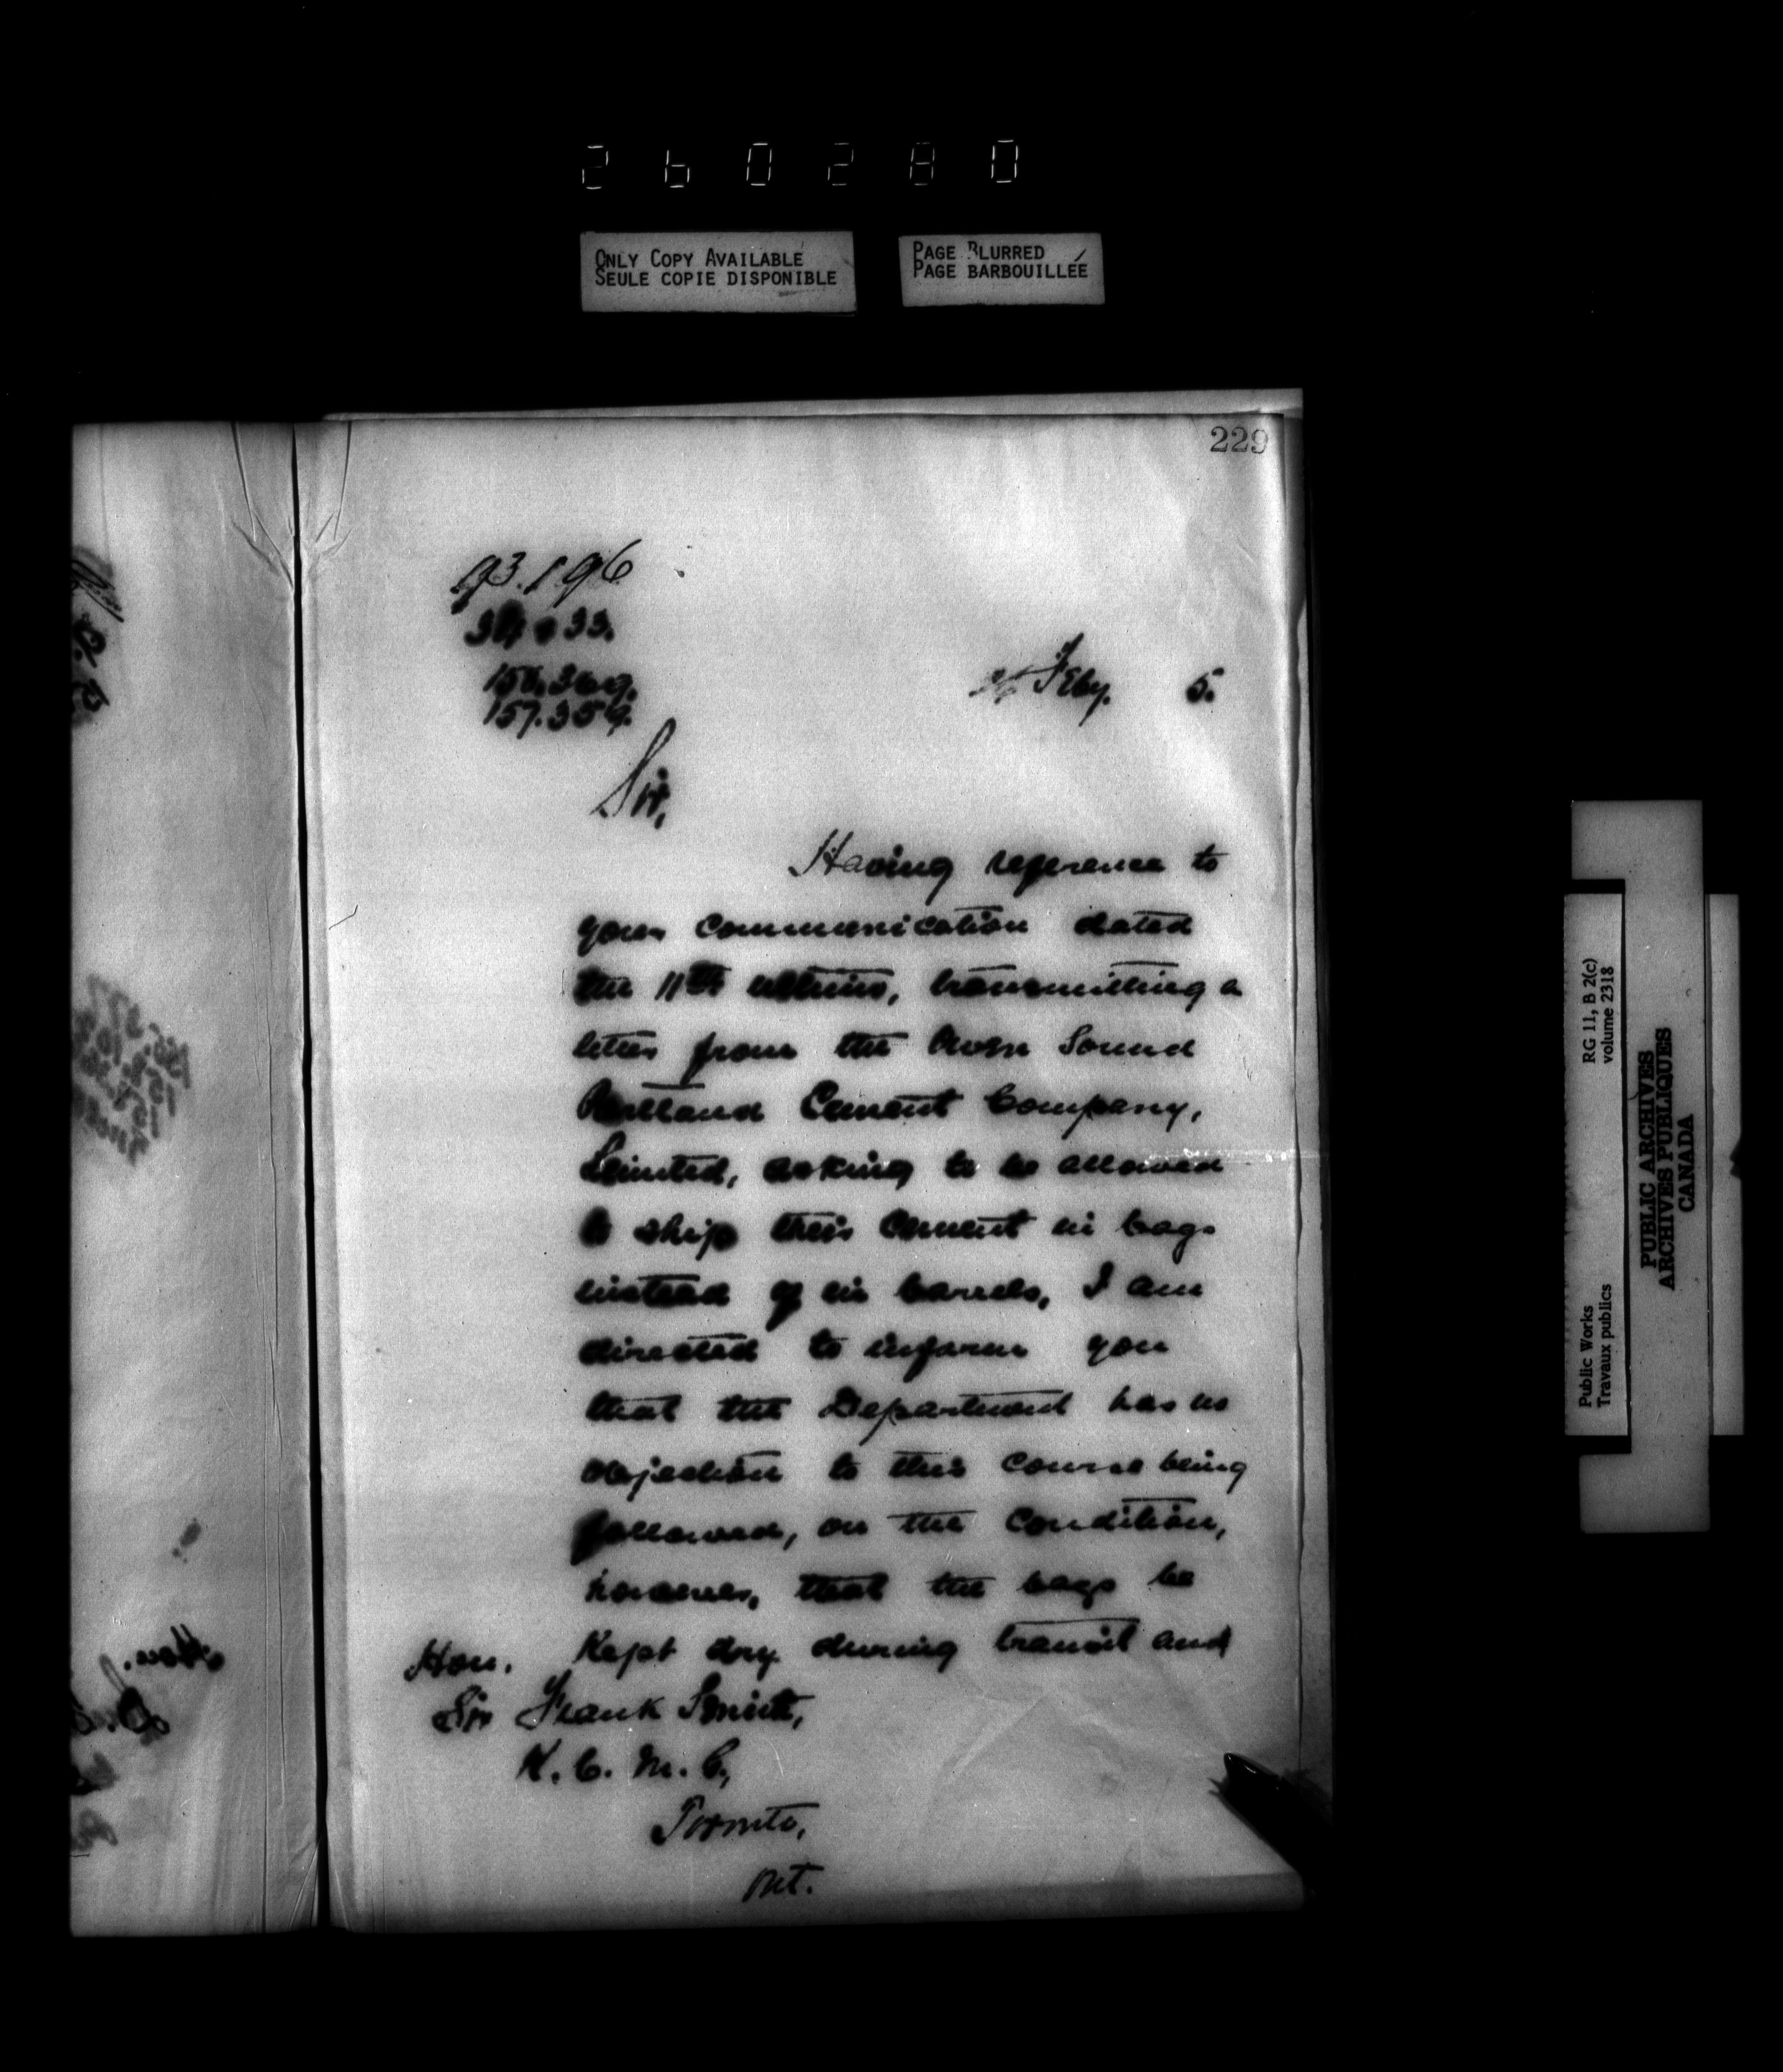 260280
ONLY COPY AVAILABLE
SEULE COPIE DISPONIBLE
PAGE BLURRED
PAGE BARBOUILLÉE
229
93.196
33.
157.359.
Feby. 5.
Sir,
Having reference to
your communication dated
the 11th ultimo, transmitting a
letter from the Owen Sound
Portland Cement Company,
Limited, asking to be allowed
to ship their cement in bags
instead of in barrels, I am
directed to inform you
that the Department has no
objection to this course being
followed, on the condition,
however, that the bags be
Kept dry during transit and
Hon.
Sir Frank Smith,
K.C.M.G.,
Toronto,
Ont.
Public Works
Travaux publics
RG 11, B 2(c)
volume 2318
PUBLIC ARCHIVES
ARCHIVES PUBLIQUES
CANADA